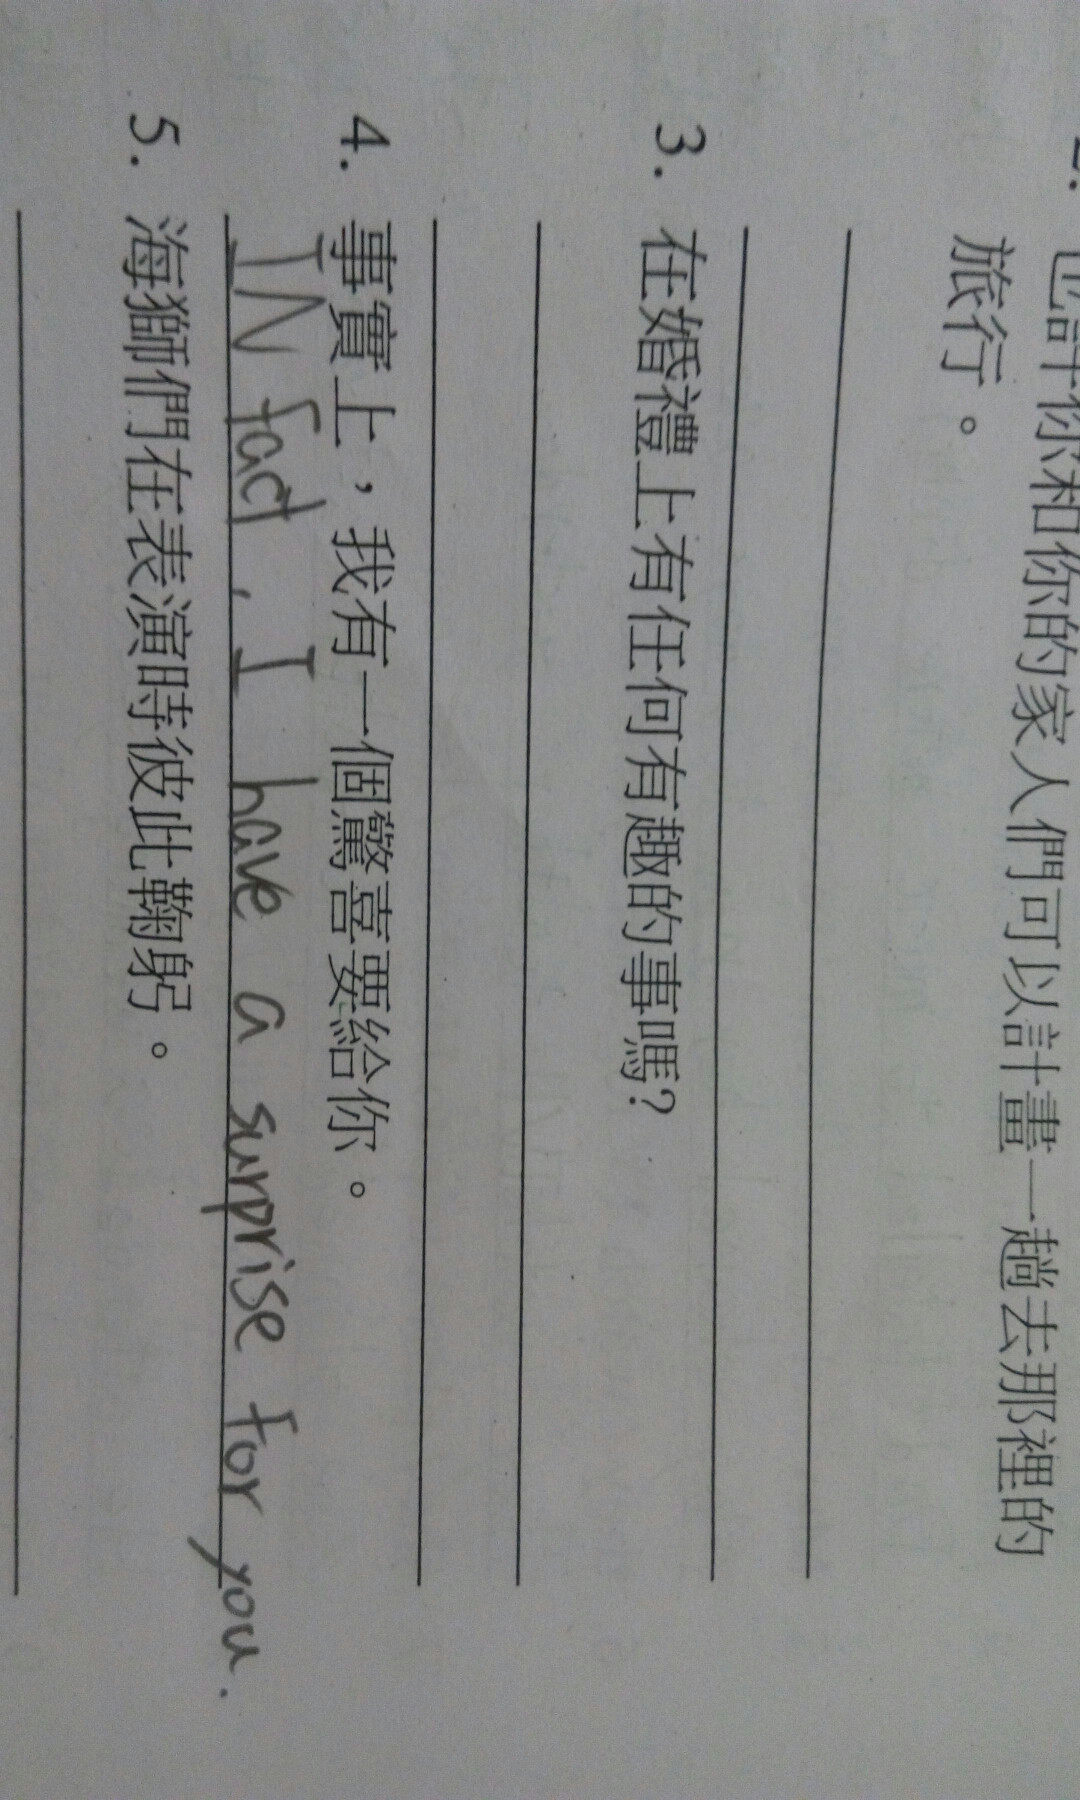 也許你和你的家人們可以計畫一趟去那裡的
旅行。
3. 在婚禮上有任何有趣的事嗎?
4. 事實上，我有一個驚喜要給你。
IN fact, I have a surprise for you.
5. 海獅們在表演時彼此鞠躬。